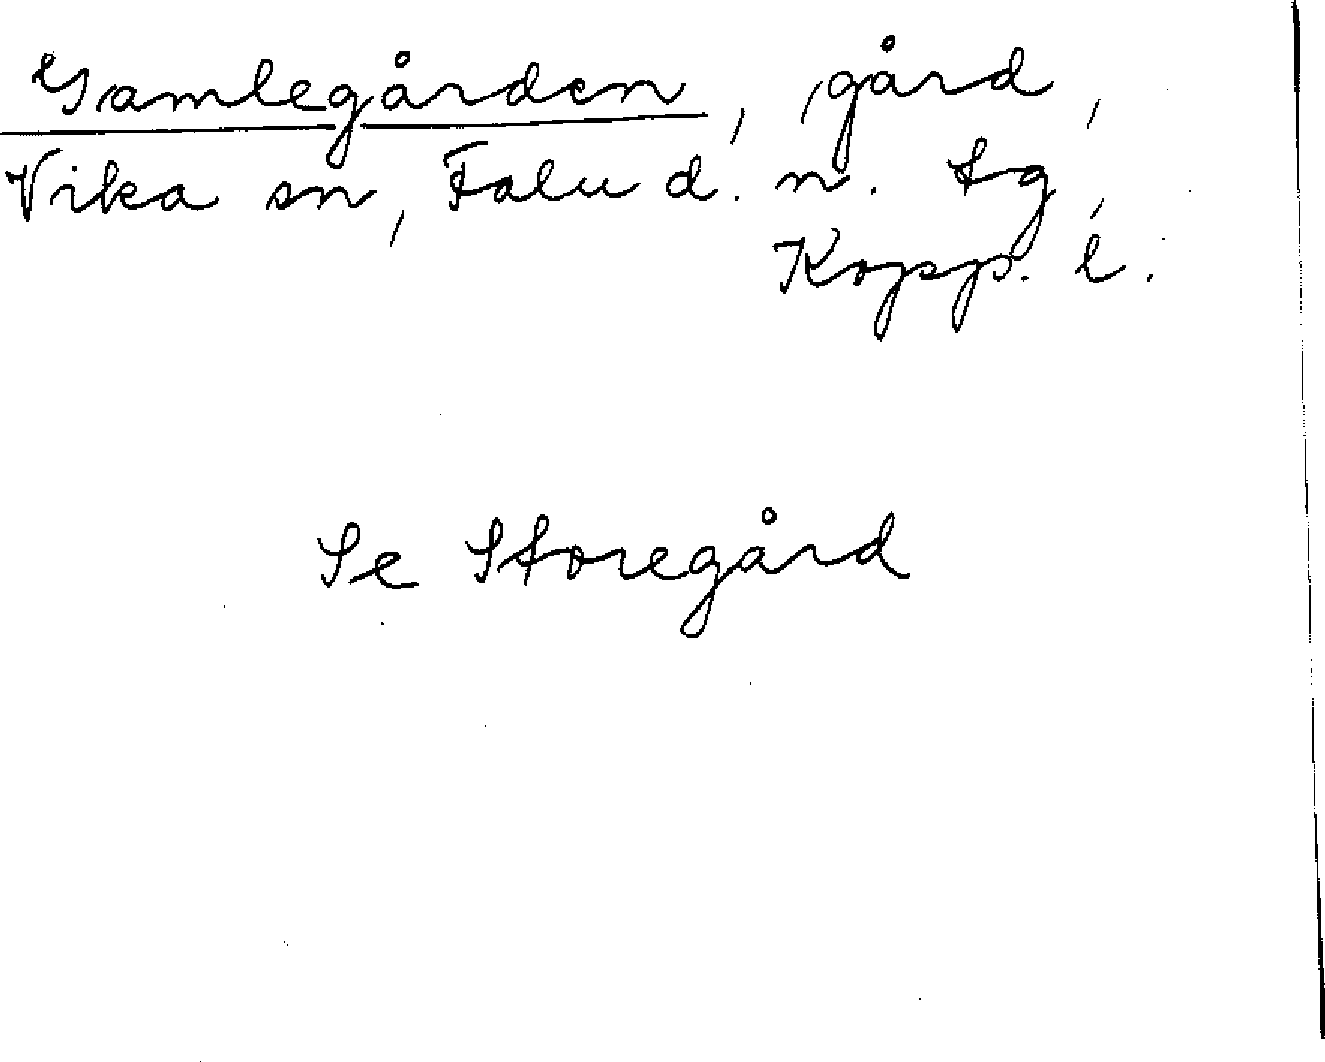 Gamlegården, gård,
Vika sn, Falu d. n. tg,
Kopp. l.
Se Storegård